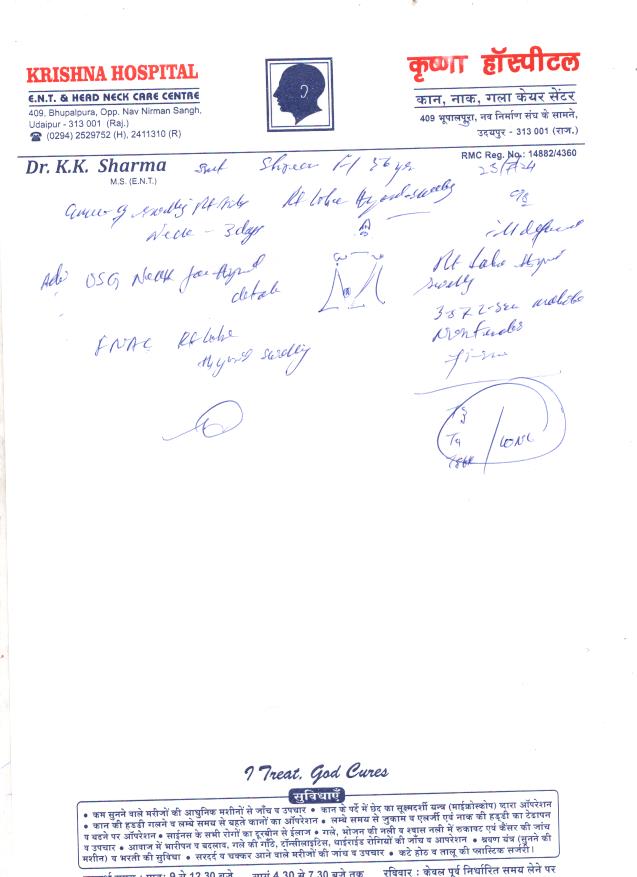 KRISHNA HOSPITAL
E.N.T. & HEAD NECK CARE CENTRE
409, Bhupalpura, Opp. Nav Nirman Sangh,
Udaipur - 313 001 (Raj.)
☎ (0294) 2529752 (H), 2411310 (R)
कृष्णा हॉस्पीटल
कान, नाक, गला केयर सेंटर
409 भूपालपुरा, नव निर्माण संघ के सामने,
उदयपुर - 313 001 (राज.)
RMC Reg. No.: 14882/4360
Dr. K.K. Sharma
M.S. (E.N.T.)
F 56 yr
Rt lobe thyroid swelling
Neck - 3 days
ill defined
Rt Lobe thyroid
swelling
Adv USG Neck for thyroid
detail
Nontender
firm
FNAC Rt lobe
thyroid swelling
T3
T4
TSH
I Treat, God Cures
सुविधाएँ
• कम सुनने वाले मरीजों की आधुनिक मशीनों से जाँच व उपचार • कान के पर्दे में छेद का सूक्ष्मदर्शी यन्त्र (माईक्रोस्कोप) द्वारा ऑपरेशन
• कान की हड्डी गलने व लम्बे समय से बहते कानों का ऑपरेशन • लम्बे समय से जुकाम व एलर्जी एवं नाक की हड्डी का टेढापन
व बढने पर ऑपरेशन • साईनस के सभी रोगों का दूरबीन से ईलाज • गले, भोजन की नली व श्वास नली में रुकावट एवं कैंसर की जांच
व उपचार • आवाज में भारीपन व बदलाव, गले की गाँठे, टॉन्सीलाइटिस, थाईराईड रोगियों की जाँच व आपरेशन • श्रवण यंत्र (सुनने की
मशीन) व भरती की सुविधा • सरदर्द व चक्कर आने वाले मरीजों की जांच व उपचार • कटे होठ व तालू की प्लास्टिक सर्जरी।
9 से 12.30 बजे सायं 4.30 से 7.30 बजे तक रविवार : केवल पूर्व निर्धारित समय लेने पर